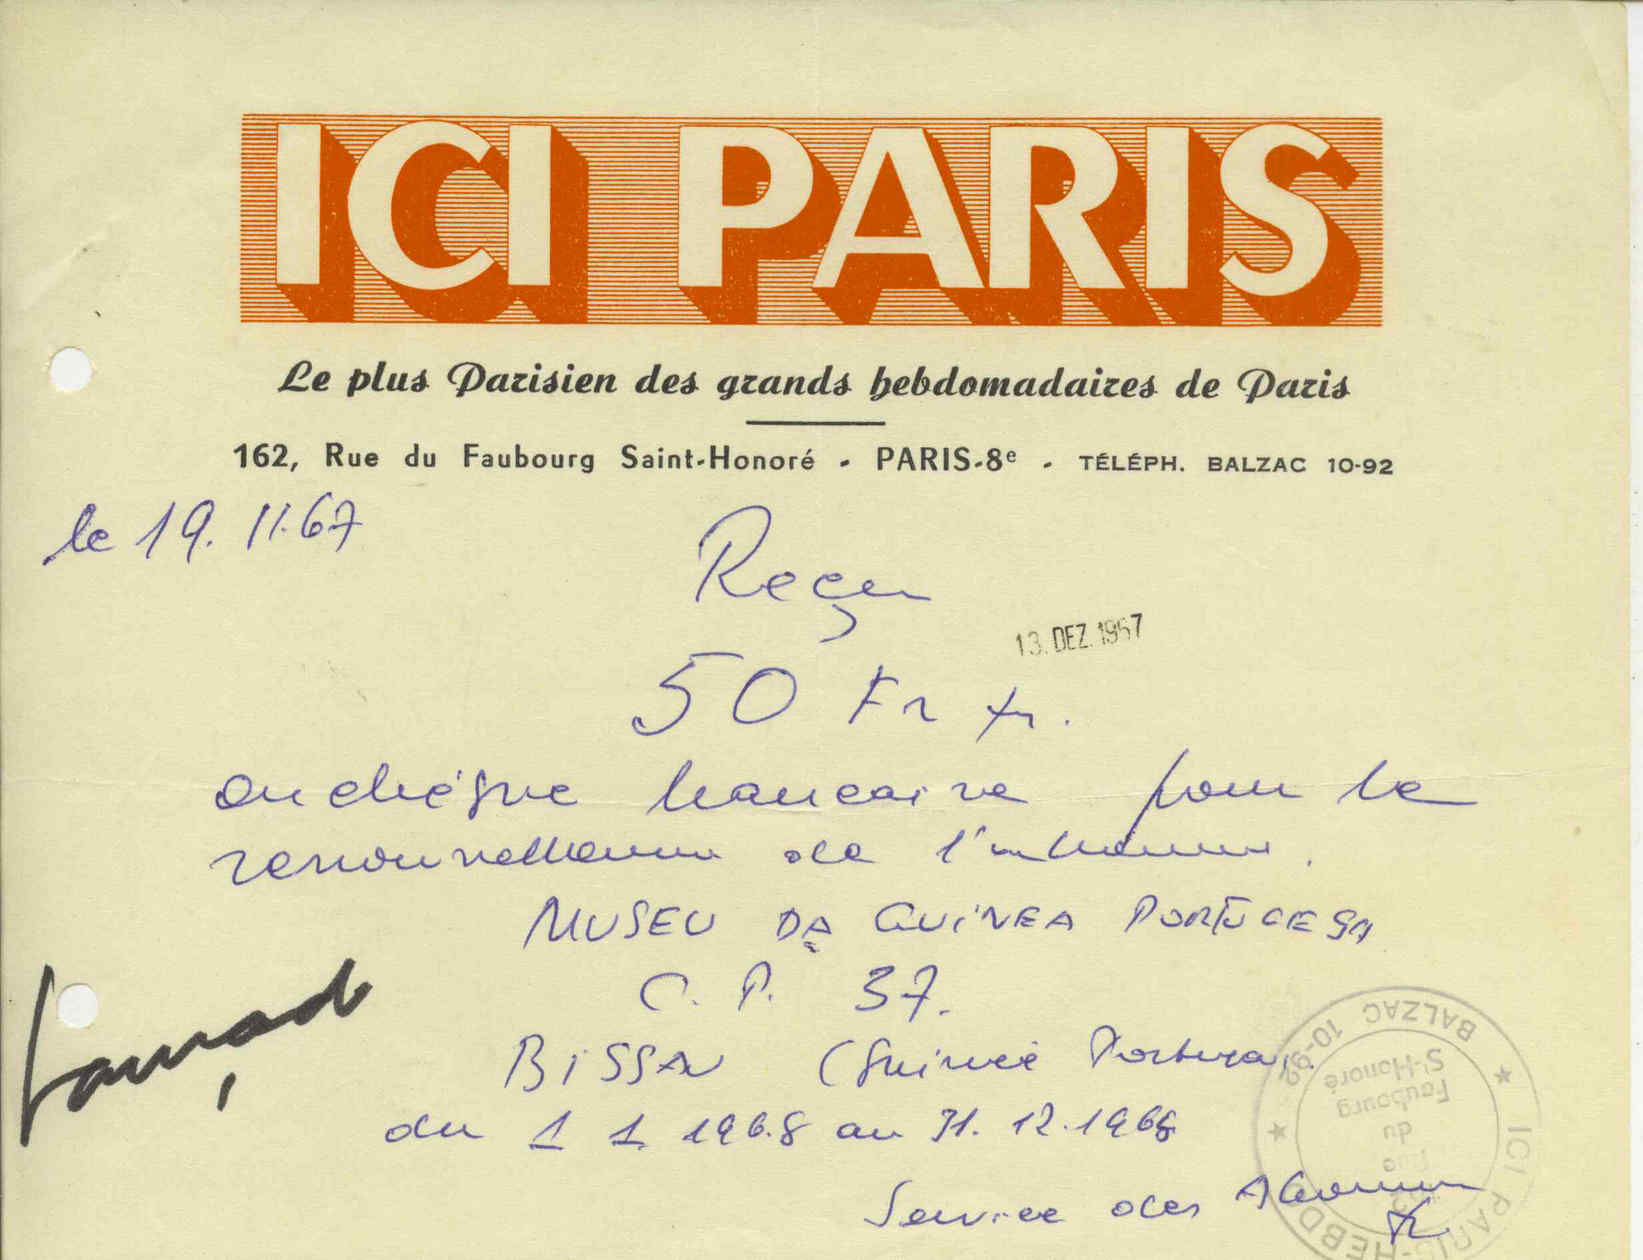 ICI PARIS
Le plus Parisien des grands hebdomadaires de Paris
162, Rue du Faubourg Saint-Honoré - PARIS-8e - TÉLÉPH. BALZAC 10-92
le 19. 11.67
Reçu
13. DEZ. 1967
50 Fr
chéque bancaire pour le
renouvellement de
MUSEU DA GUINEA PORTUGESA
C. P. 37.
BISSAU (Guinée
du 1 1 1968 au 31. 12. 1968
Service des
BALZAC 10-92
ICI PARIS-HEBDO
Rue
du
Faubourg
St-Honoré